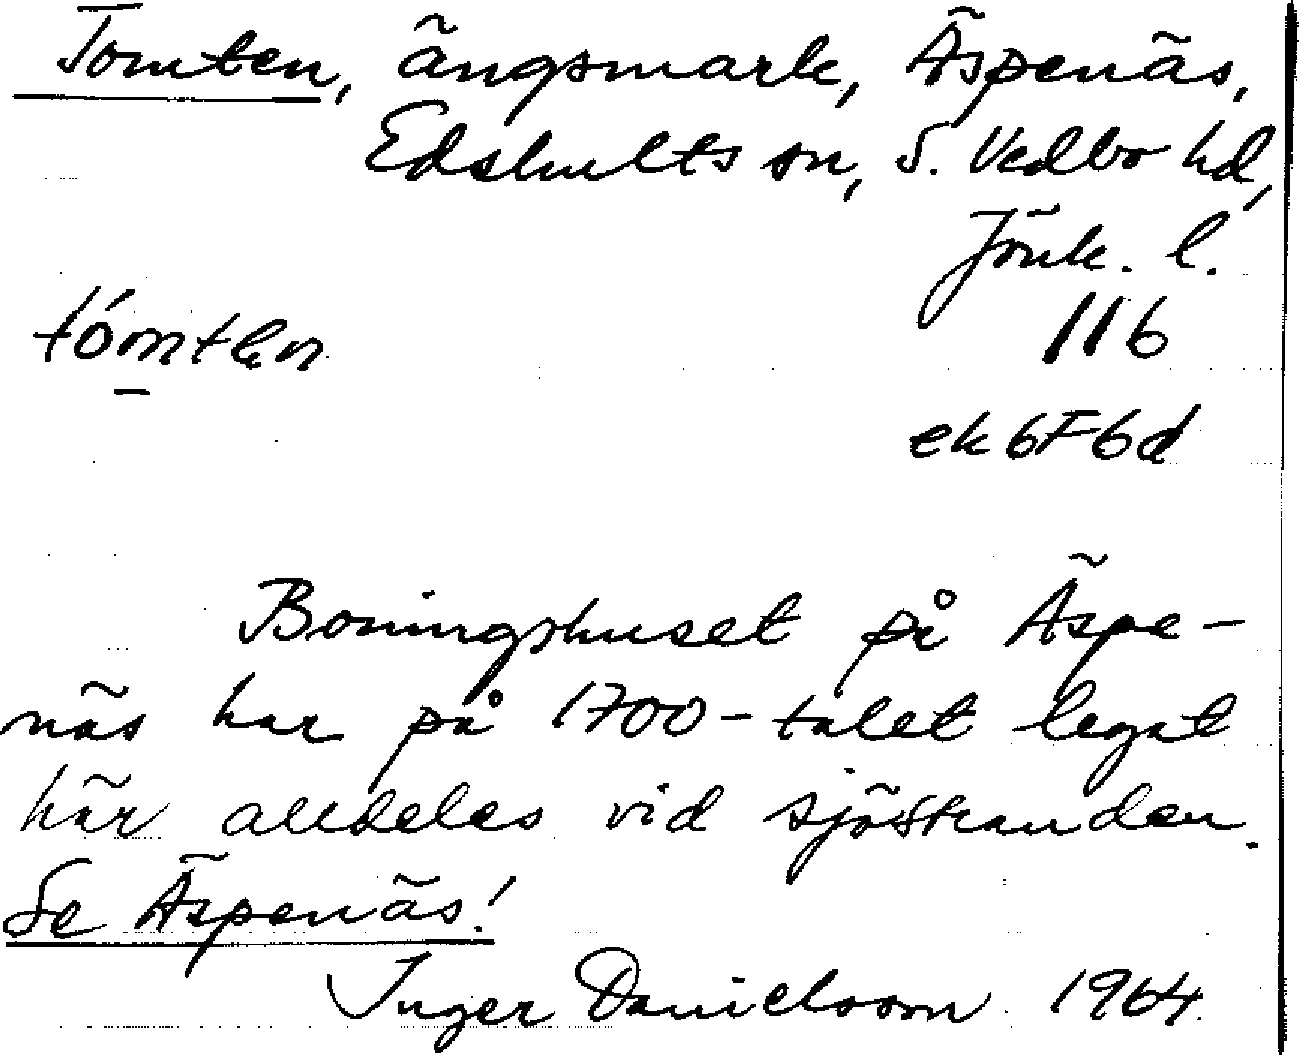 Tomten, ängsmark, Äspenäs,
Edshults sn, S. Vedbo hd,
Jönk. l.
tómtən 116
ek 6F6d
Boningshuset på Äspe-
näs har på 1700-talet legat
här alldeles vid sjöstranden.
Se Äspenäs!
Inger Danielsson 1964